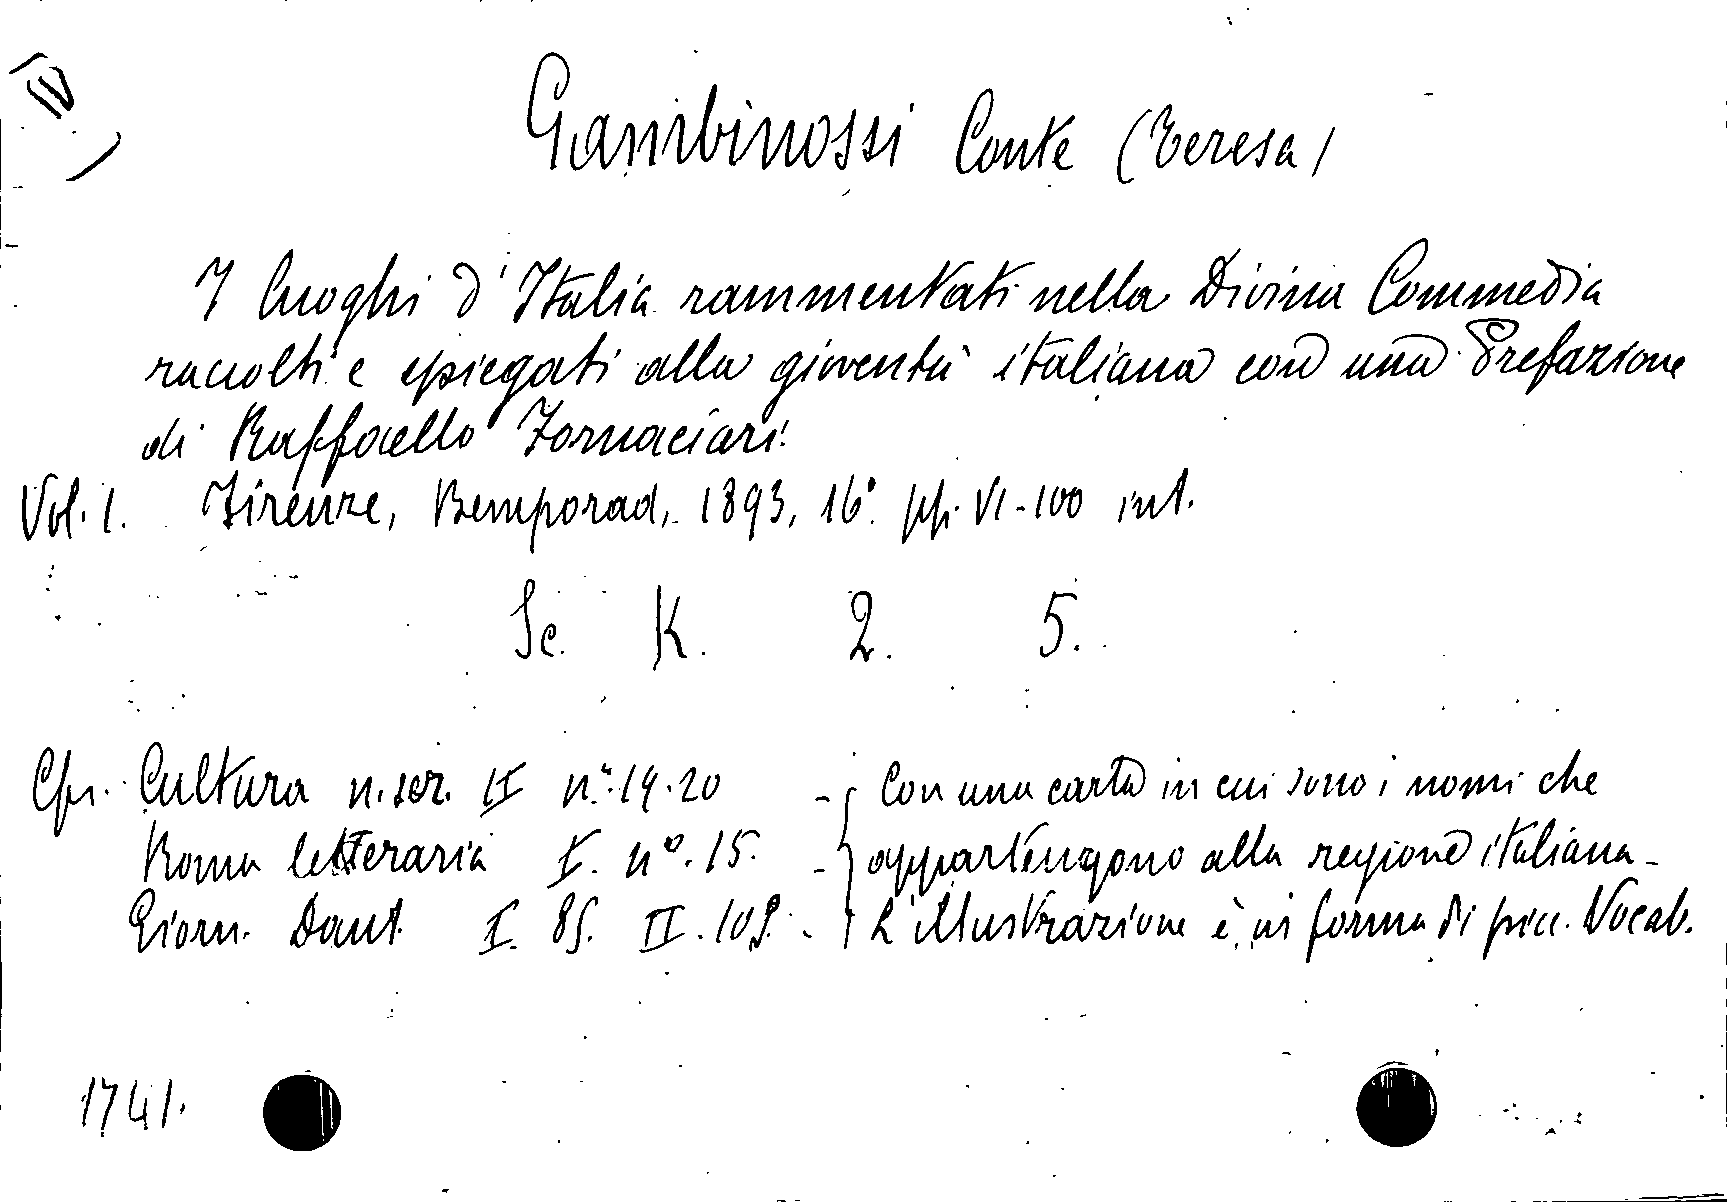 IV)
Gambinossi Conte (Teresa)
I luoghi d'Italia rammentati nella Divina Commedia
raccolti e spiegati alla gioventù italiana con una Prefazione
di Raffaello Fornaciari.
Vol. 1. Firenze, Bemporad, 1893, 16° pp. VI-100 int.
Sc. K. 2. 5.
Cfr. Cultura n. ser. II n.° 19.20
Roma letteraria I. n°. 15.
Giorn. Dant. I. 85. II. 109.
Con una carta in cui sono i nomi che
appartengono alla regione italiana -
L'illustrazione è in forma di picc. Vocab.
1741.